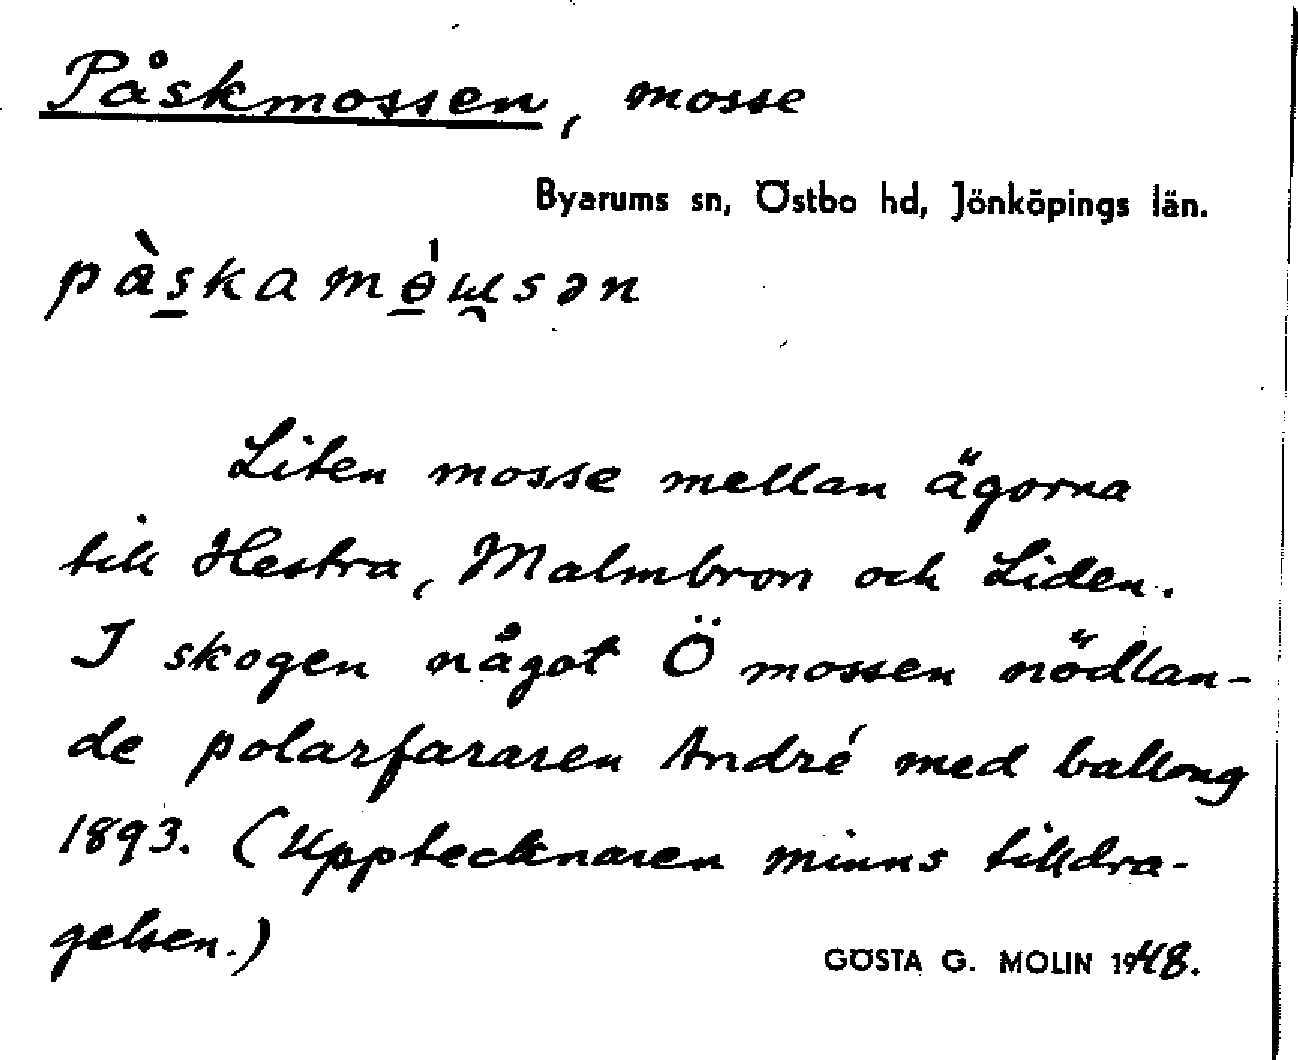 Påskmossen, mosse
Byarums sn, Östbo hd, Jönköpings län.
Liten mosse mellan ägorna
till Hestra, Malmbron och Liden.
I skogen något Ö mossen nödlan-
de polarfararen André med ballong
1893. (Upptecknaren minns tilldra-
gelsen.)
GÖSTA G. MOLIN 1948.